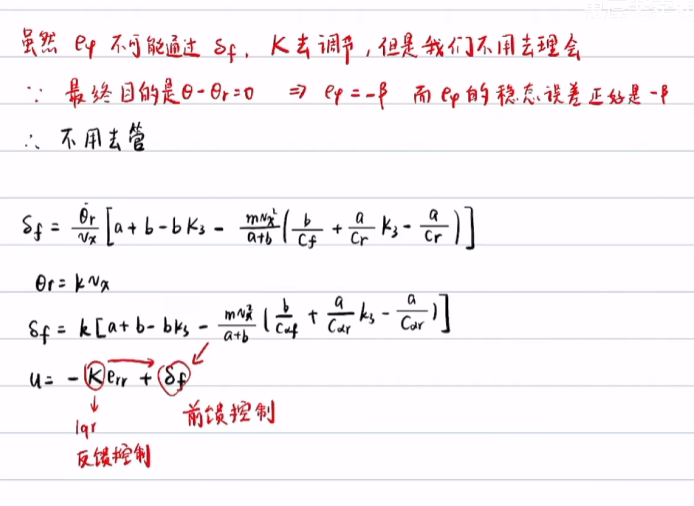 虽然 eφ 不可能通过 δf, K 去调节,但是我们不用去理会
∵ 最终目的是θ-θr=0 ⇒ eφ=-β 而 eφ的稳态误差正好是 -β
∴ 不用去管
δf = θ̇r/vx [a+b-bk₃ - mvx²/(a+b) (b/Cf + a/Cr k₃ - a/Cr)]
θr = k vx
δf = k[a+b-bk₃ - mvx²/(a+b) (b/Cαf + a/Cαr k₃ - a/Cαr)]
u = -Kerr + δf
前馈控制
lqr
反馈控制